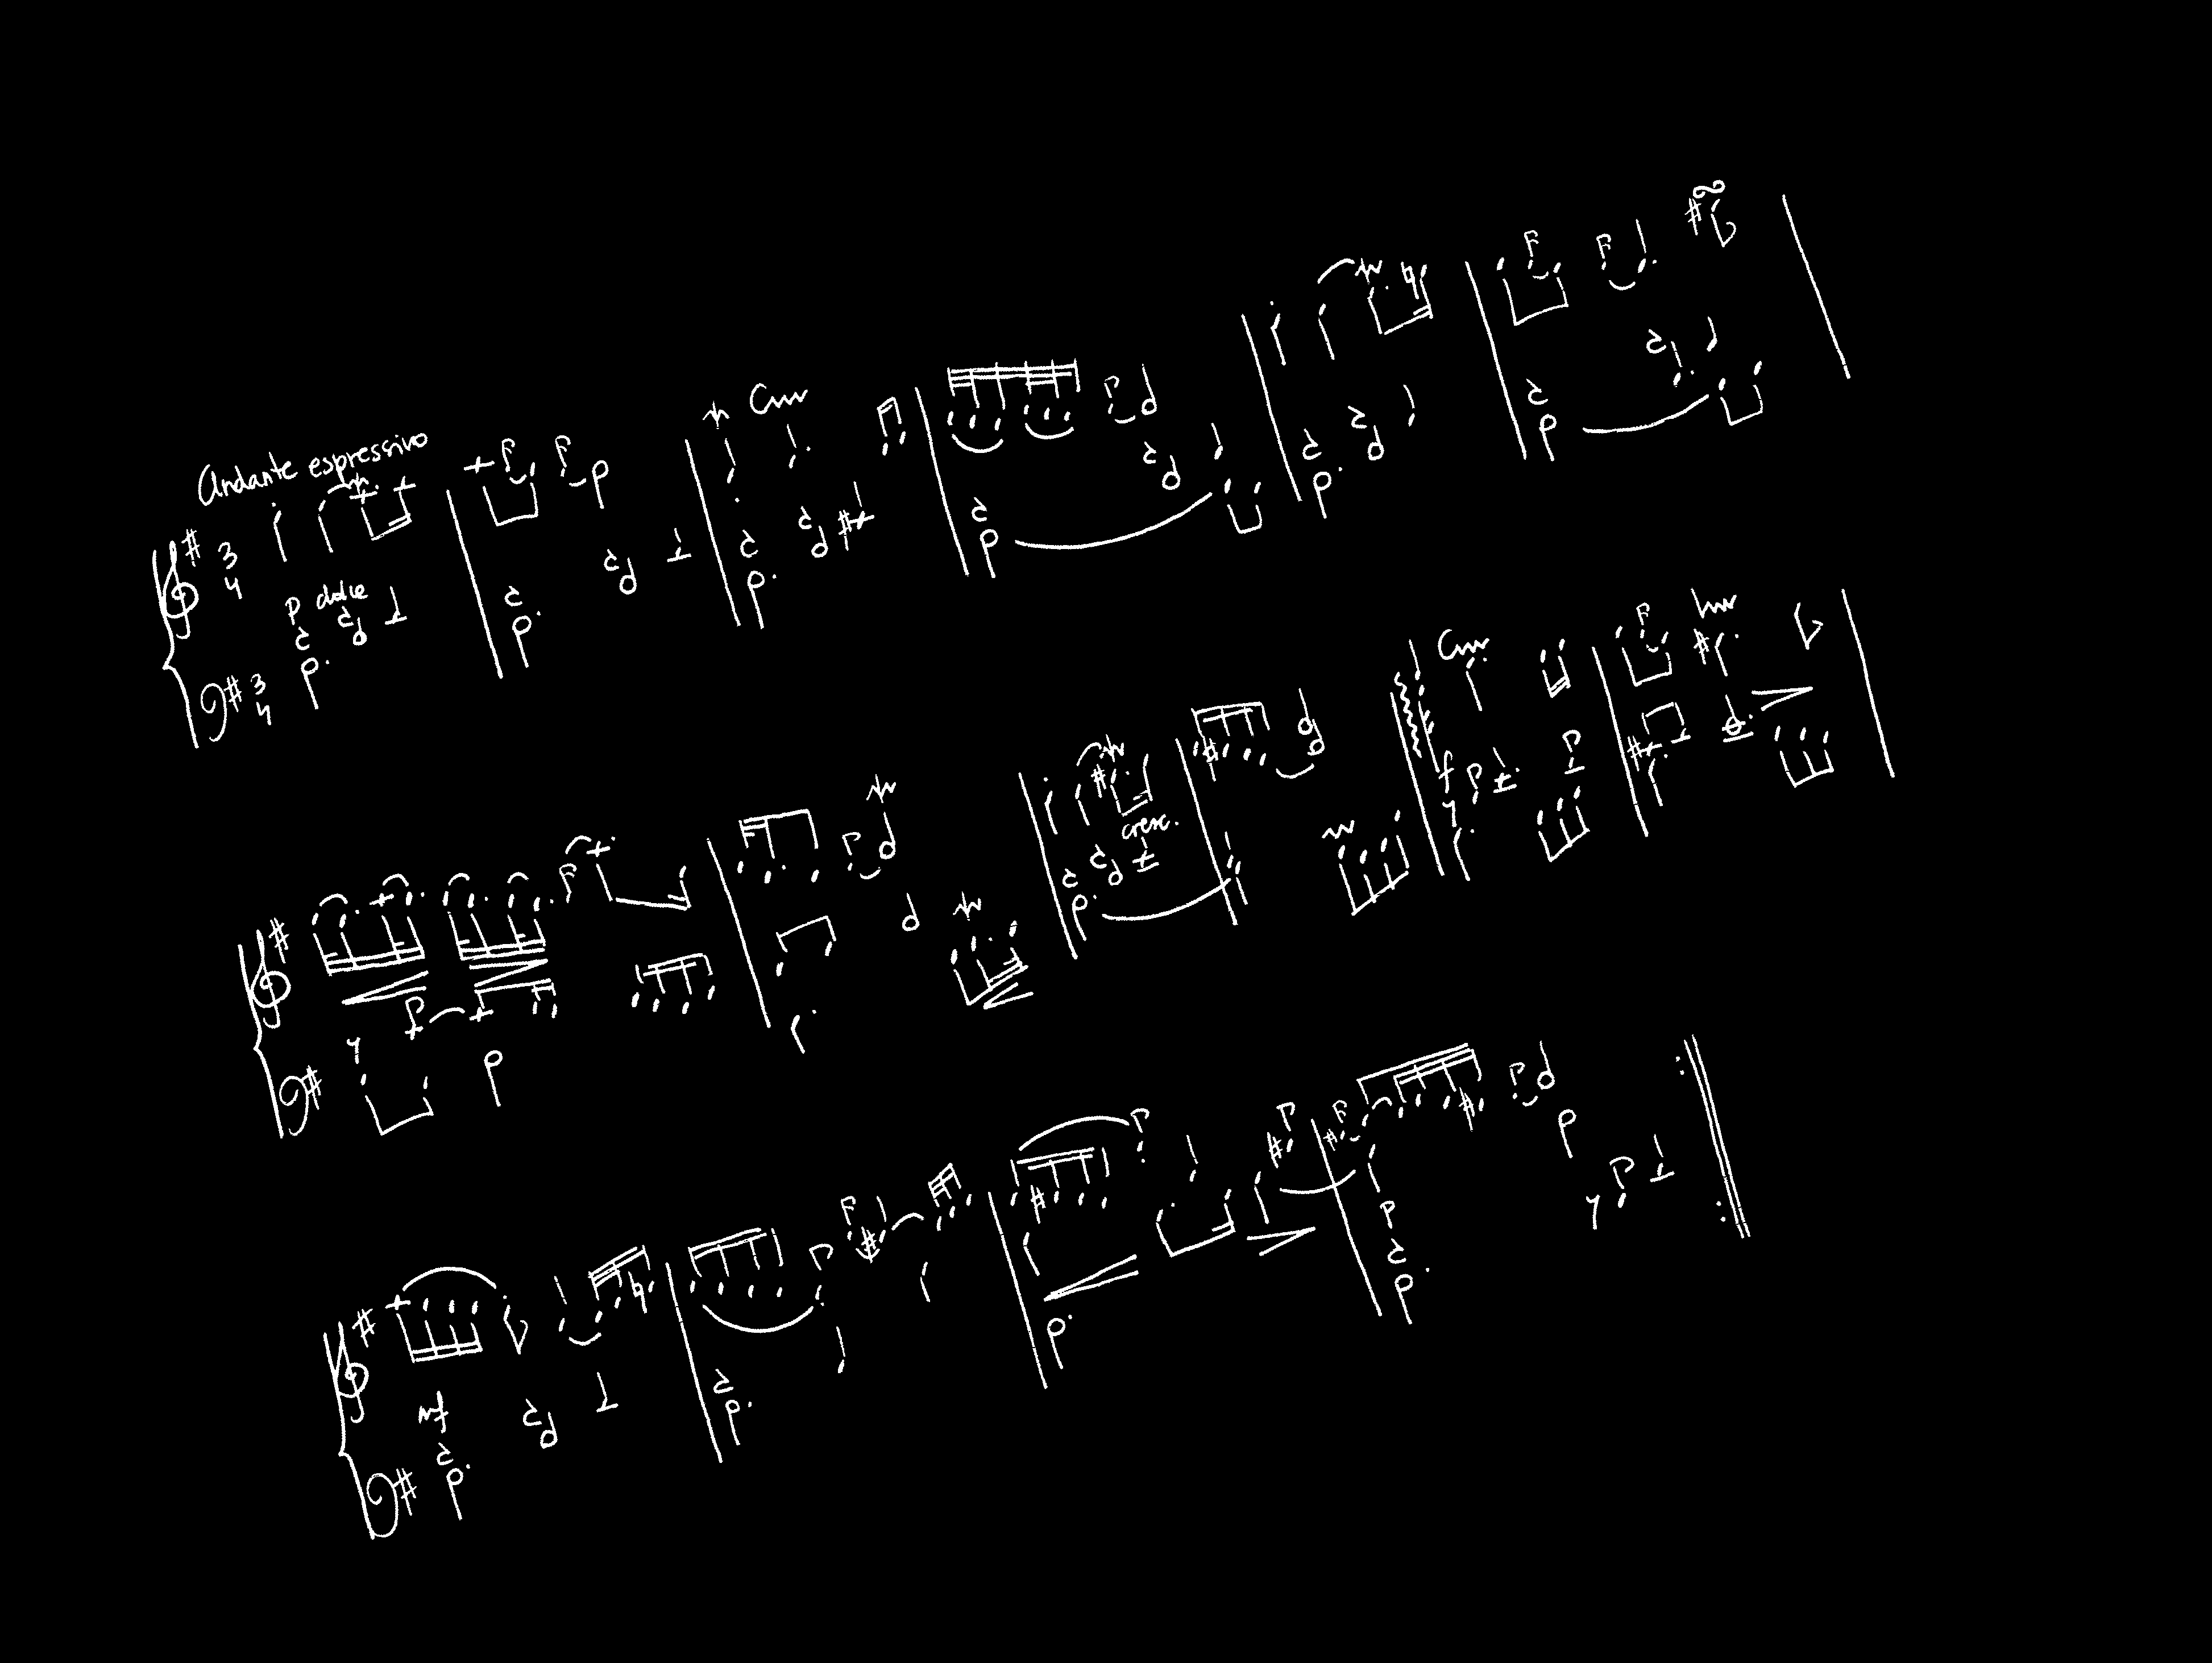 Andante espressivo
3
4
p dolce
3
4
cresc.
f
mf